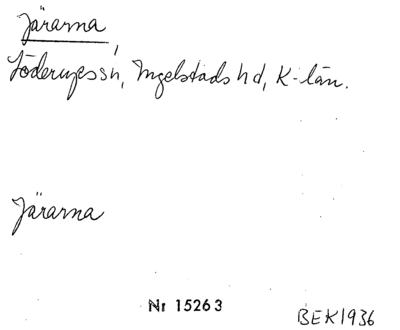 Järarna
Löderups sn, Ingelstads hd, K-län.
Järarna
Nr 15263
BEK1936